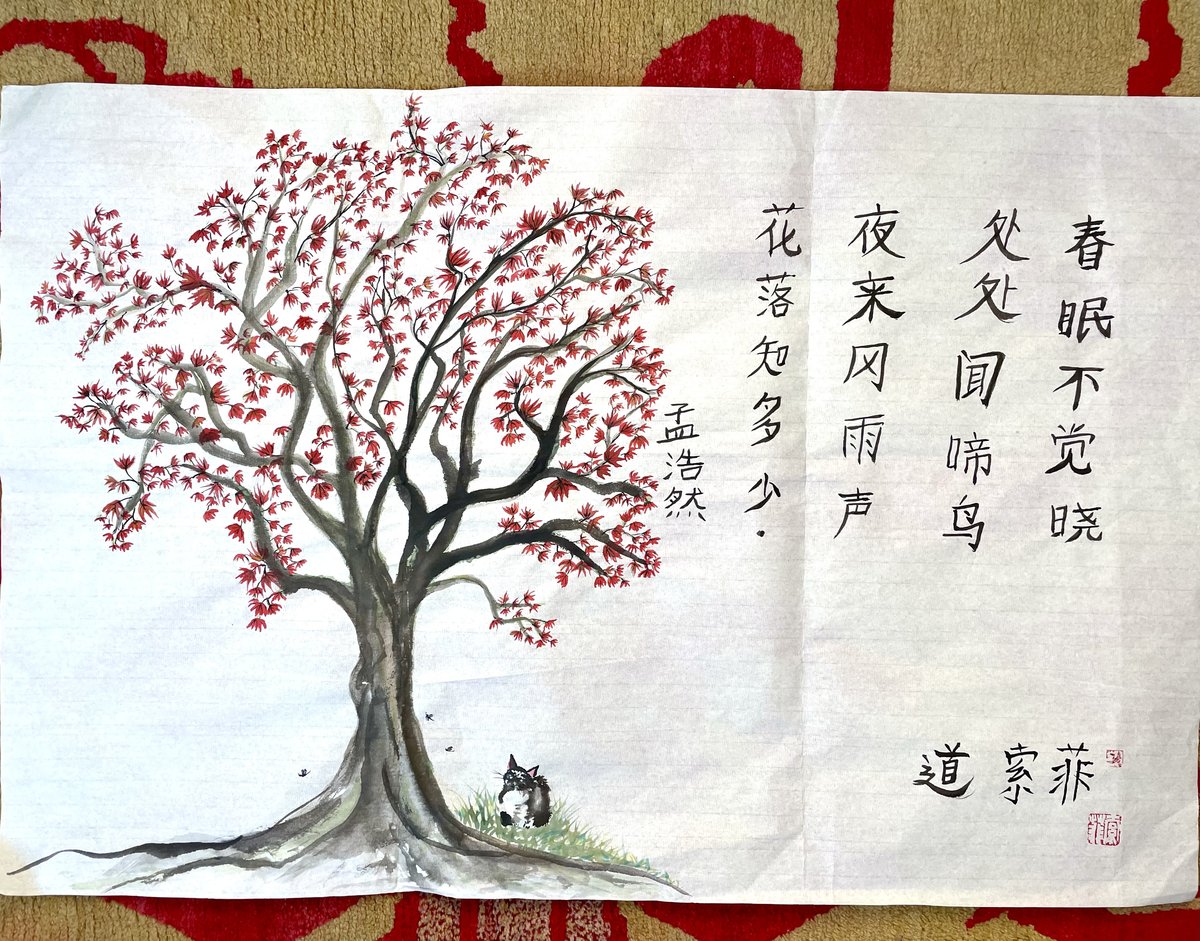 春眠不觉晓
处处闻啼鸟
夜来冈雨声
花落知多少.
孟浩然
道索菲